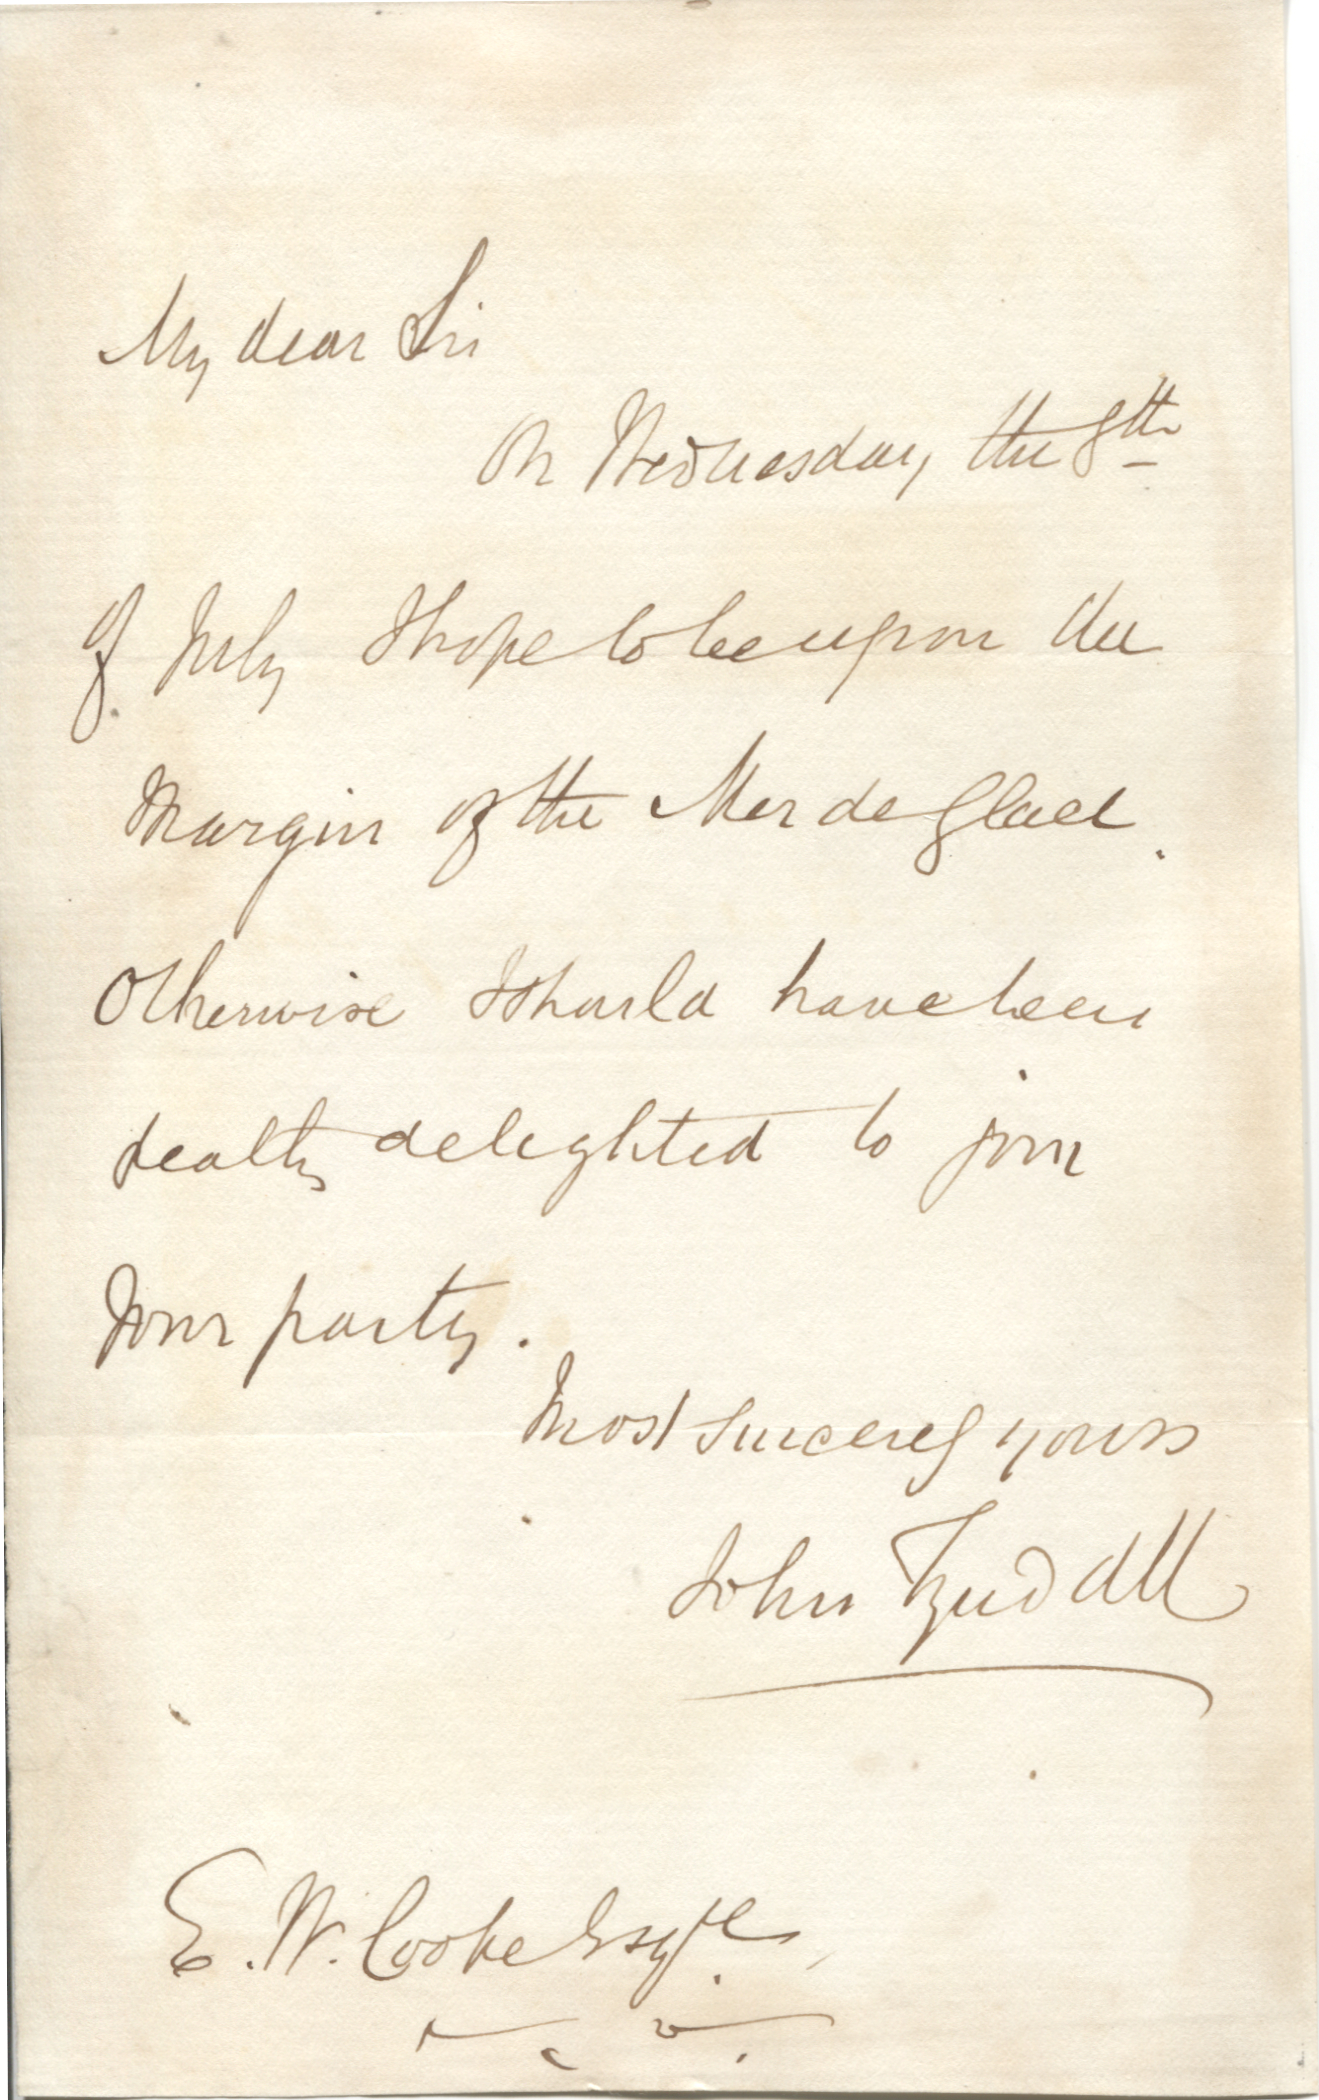 My dear Sir
On Wednesday the 8th
of July I hope to be upon the
Margin of the Mer de Glace.
Otherwise I should have been
really delighted to join
Your party.
Most sincerely yours
John Tyndall
E. W. Cooke Esqre